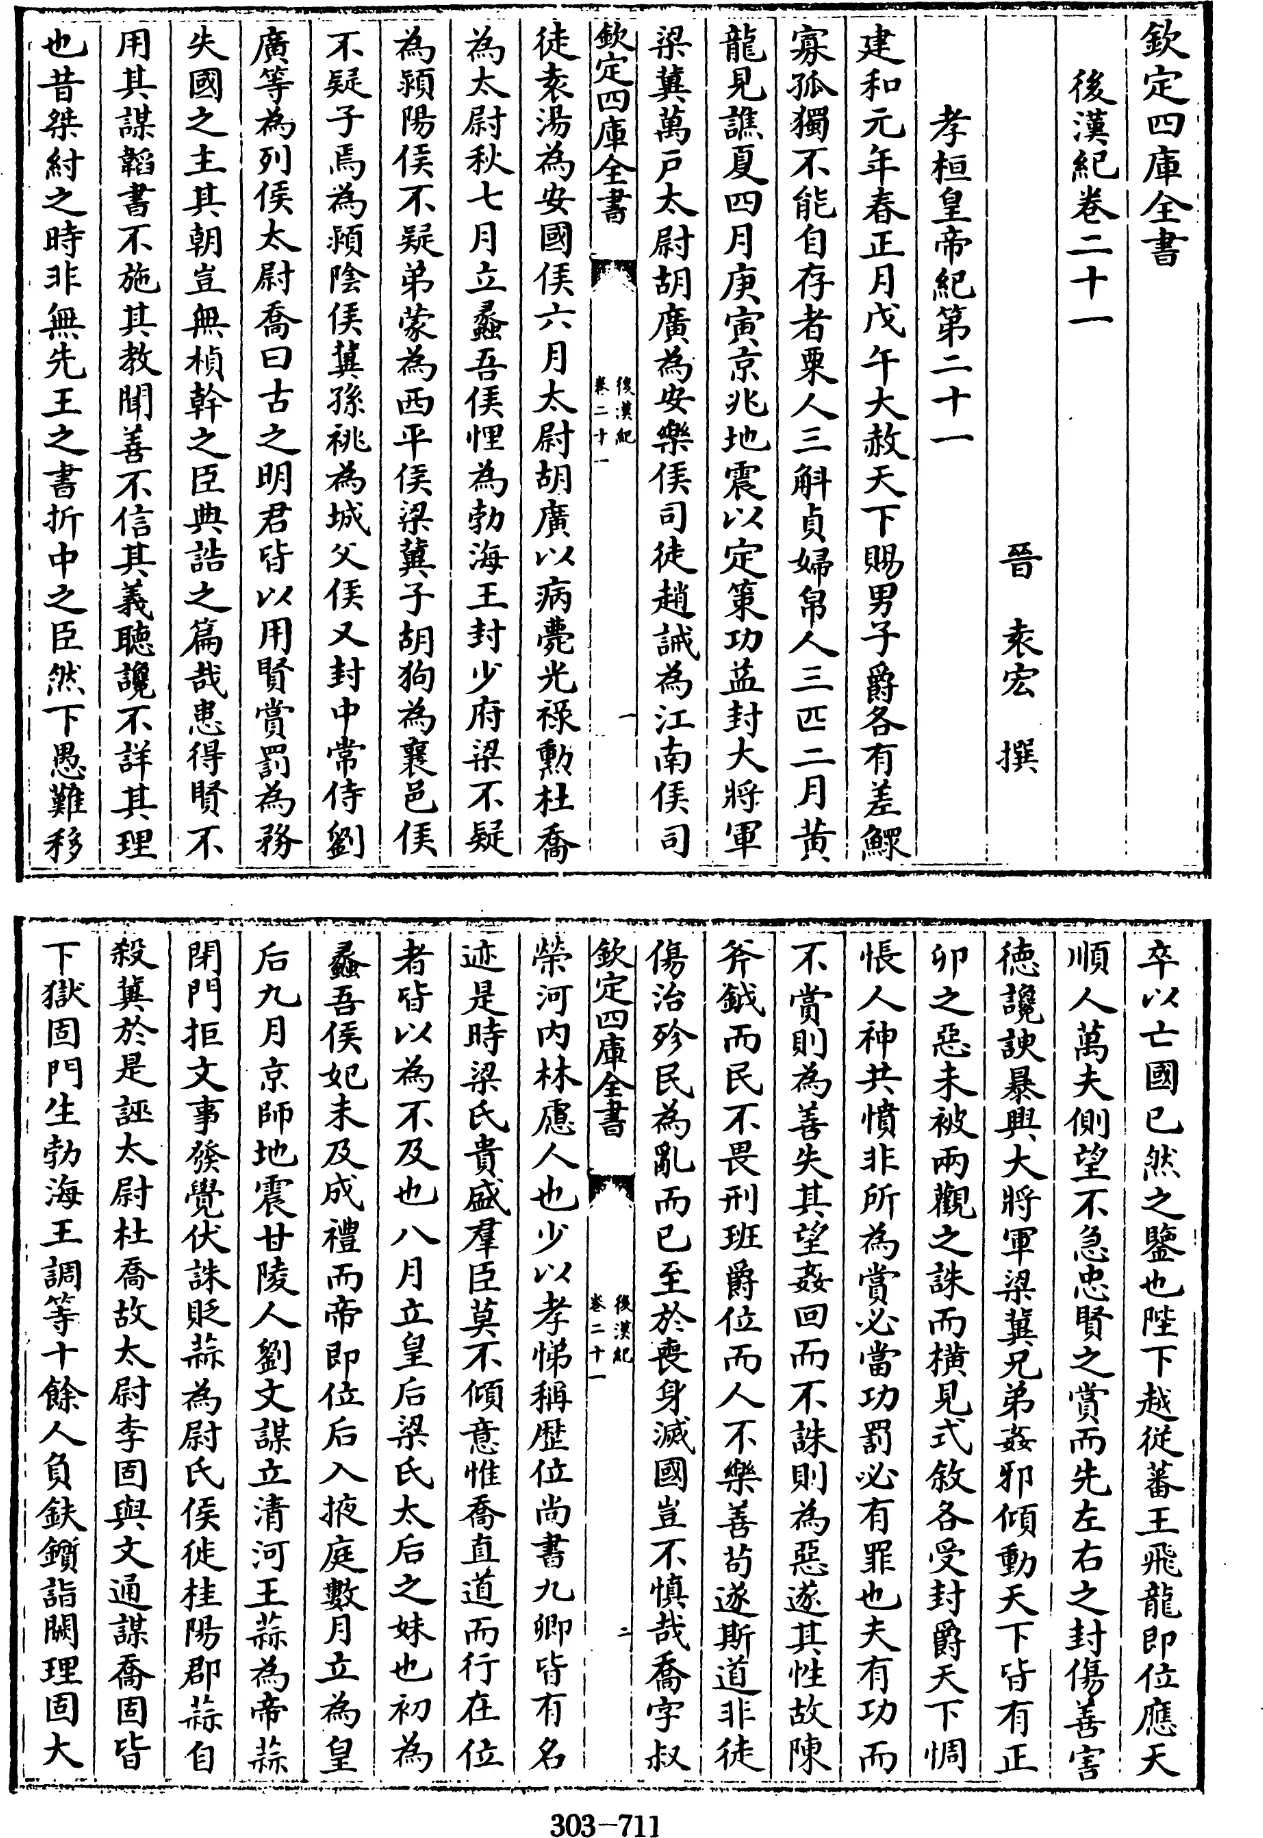 欽定四庫全書
後漢紀卷二十一
晉　袁宏　撰
孝桓皇帝紀第二十一
建和元年春正月戊午大赦天下賜男子爵各有差鰥
寡孤獨不能自存者粟人三斛貞婦帛人三匹二月黄
龍見譙夏四月庚寅京兆地震以定策功益封大將軍
梁冀萬户太尉胡廣為安樂侯司徒趙誡為江南侯司
欽定四庫全書
後漢紀
卷二十一
一
徒袁湯為安國侯六月太尉胡廣以病薨光禄勲杜喬
為太尉秋七月立蠡吾侯悝為勃海王封少府梁不疑
為潁陽侯不疑弟蒙為西平侯梁冀子胡狗為襄邑侯
不疑子焉為潁陰侯冀孫祧為城父侯又封中常侍劉
廣等為列侯太尉喬曰古之明君皆以用賢賞罰為務
失國之主其朝豈無楨幹之臣典誥之篇哉患得賢不
用其謀韜書不施其教聞善不信其義聽讒不詳其理
也昔桀紂之時非無先王之書折中之臣然下愚難移
卒以亡國已然之鑒也陛下越從蕃王飛龍即位應天
順人萬夫側望不急忠賢之賞而先左右之封傷善害
徳讒諛暴興大將軍梁冀兄弟姦邪傾動天下皆有正
卯之惡未被兩觀之誅而橫見式敘各受封爵天下惆
悵人神共憤非所為賞必當功罰必有罪也夫有功而
不賞則為善失其望姦回而不誅則為惡遂其性故陳
斧鉞而民不畏刑班爵位而人不樂善茍遂斯道非徒
傷治殄民為亂而已至於喪身滅國豈不慎哉喬字叔
欽定四庫全書
後漢紀
卷二十一
二
榮河内林慮人也少以孝悌稱歴位尚書九卿皆有名
迹是時梁氏貴盛羣臣莫不傾意惟喬直道而行在位
者皆以為不及也八月立皇后梁氏太后之妹也初為
蠡吾侯妃未及成禮而帝即位后入掖庭數月立為皇
后九月京師地震甘陵人劉文謀立清河王蒜為帝蒜
閉門拒文事發覺伏誅貶蒜為尉氏侯徙桂陽郡蒜自
殺冀於是誣太尉杜喬故太尉李固與文通謀喬固皆
下獄固門生勃海王調等十餘人負鈇鑕詣闕理固大
303-711